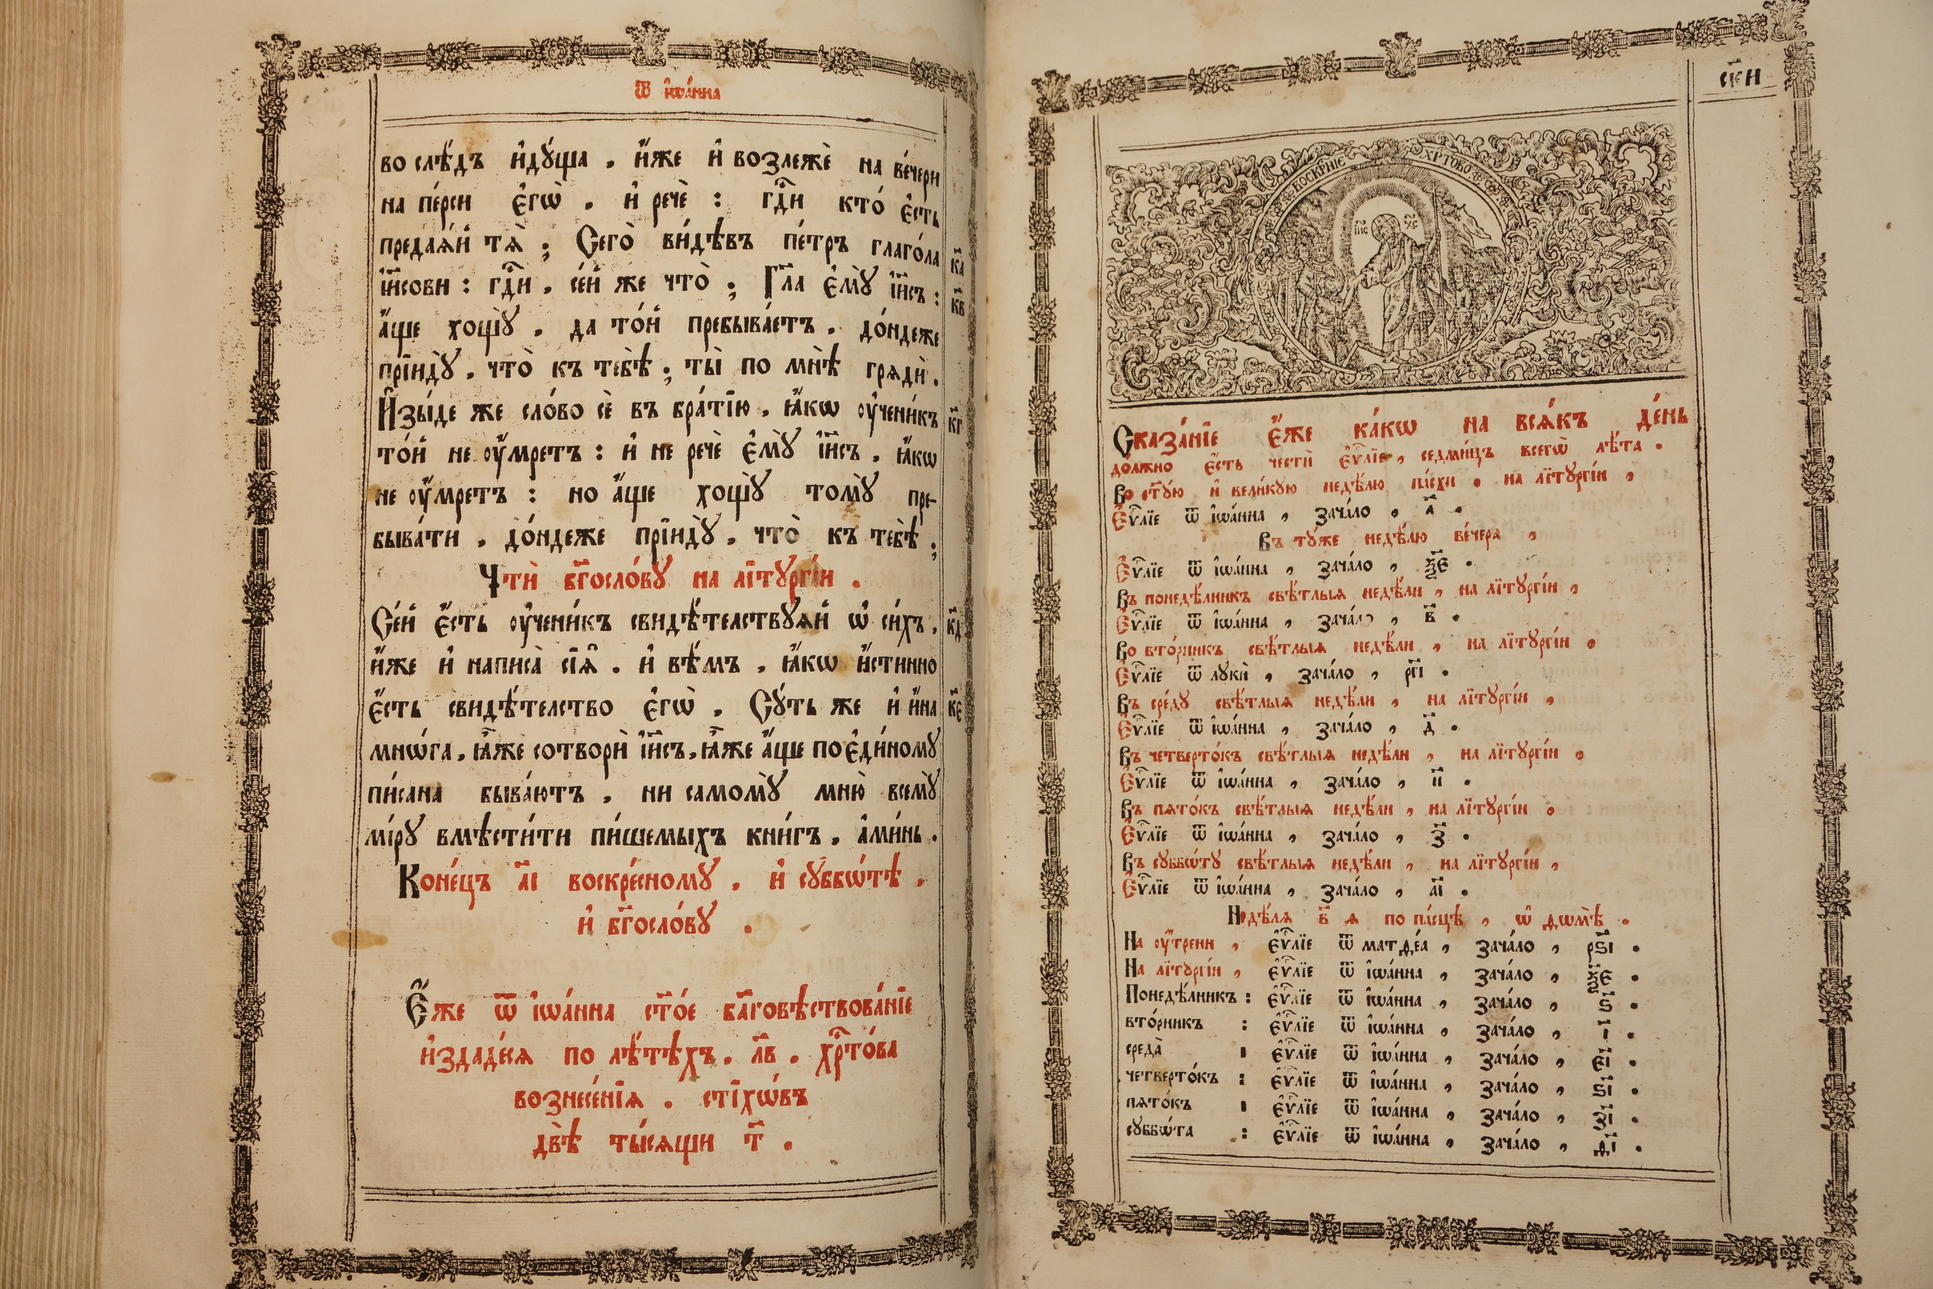 Ѿ іѡа́нна
во слѣ́дъ и҆дꙋ́ща , и҆́же и҆ возлежѐ на ве́чери
на пе́рси є҆гѡ̀ , и҆ речѐ : гдⷭ҇и кто́ є҆сть
предаѧ́й тѧ̀ ; Сего̀ ви́дѣвъ пе́тръ глаго́ла
к҃а
і҆и҃сови : гдⷭ҇и , се́й же что̀ ; Гл҃а є҆мꙋ̀ і҆и҃съ :
к҃в
а҆́ще хощꙋ̀ , да то́й пребыва́етъ , до́ндеже
прїидꙋ̀ , что̀ къ тебѣ̀ ; ты̀ по мнѣ̀ грѧдѝ .
И҆зы́де же сло́во сѐ въ бра́тїю , ꙗ҆́кѡ ᲂу҆чени́къ
к҃г
то́й не ᲂу҆́мретъ : и҆ не речѐ є҆мꙋ̀ і҆и҃съ , ꙗ҆́кѡ
не ᲂу҆́мретъ : но а҆́ще хощꙋ̀ томꙋ̀ пре-
быва́ти , до́ндеже прїидꙋ̀ , что̀ къ тебѣ̀ ;
Чтѝ бг҃осло́вꙋ на лїтꙋргі́и .
Се́й є҆́сть ᲂу҆чени́къ свидѣ́телствꙋѧй ѡ҆ си́хъ ,
к҃д
и҆́же и҆ написа̀ сїѧ̑ . и҆ вѣ́мъ , ꙗ҆́кѡ и҆́стинно
є҆́сть свидѣ́телство є҆гѡ̀ . Сꙋ́ть же и҆ и҆́на
к҃є
мнѡ́га , ꙗ҆̀же сотворѝ і҆и҃съ , ꙗ҆̀же а҆́ще по є҆ди́номꙋ
пи́сана быва́ютъ , ни самомꙋ̀ мню̀ всемꙋ̀
мі́рꙋ вмѣсти́ти пи́шемыхъ кни́гъ . а҆ми́нь .
Коне́цъ а҃і воскре́сномꙋ , и҆ сꙋббѡ́тѣ ,
и҆ бг҃осло́вꙋ .
Є҆́же ѿ і҆ѡа́нна ст҃о́е бл҃говѣствова́нїе
и҆здаде́сѧ по лѣ́тѣхъ , л҃в , хрⷭ҇то́ва
вознесе́нїѧ . стїхѡ́въ
двѣ̀ ты́сѧщи т҃ .
ск҃и
ВОСКРН҃ІЕ ХРТОВО
І҆С Х҆С
Сказа́нїе є҆́же ка́кѡ на всѧ́къ де́нь
до́лжно є҆́сть че́сти є҆ѵⷢ҇лїе , седми́цъ всегѡ̀ лѣ́та .
Во ст҃ꙋ́ю и҆ вели́кꙋю недѣ́лю па́схи , на лїтꙋргі́и ,
Є҆ѵⷢ҇лїе ѿ і҆ѡа́нна , зача́ло , а҃ .
Въ тꙋ́же недѣ́лю ве́чера ,
Є҆ѵⷢ҇лїе ѿ і҆ѡа́нна , зача́ло , ѯ҃є .
Въ понедѣ́лникъ свѣ́тлыѧ недѣ́ли , на лїтꙋргі́и ,
Є҆ѵⷢ҇лїе ѿ і҆ѡа́нна , зача́ло , в҃ .
Во вто́рникъ свѣ́тлыѧ недѣ́ли , на лїтꙋргі́и .
Є҆ѵⷢ҇лїе ѿ лꙋкѝ , зача́ло , рг҃і .
Въ сре́дꙋ свѣ́тлыѧ недѣ́ли , на лїтꙋргі́и ,
Є҆ѵⷢ҇лїе ѿ і҆ѡа́нна , зача́ло , д҃ .
Въ четверто́къ свѣ́тлыѧ недѣ́ли , на лїтꙋргі́и .
Є҆ѵⷢ҇лїе ѿ і҆ѡа́нна , зача́ло , и҃ .
Въ пѧто́къ свѣ́тлыѧ недѣ́ли , на лїтꙋргі́и .
Є҆ѵⷢ҇лїе ѿ і҆ѡа́нна , зача́ло , з҃ .
Въ сꙋббѡ́тꙋ свѣ́тлыѧ недѣ́ли , на лїтꙋргі́и ,
Є҆ѵⷢ҇лїе ѿ і҆ѡа́нна , зача́ло , а҃і .
Недѣ́лѧ в҃ ѧ по па́сцѣ , ѡ҆ ѳѡмѣ̀ .
На ᲂу҆́трени , є҆ѵⷢ҇лїе ѿ матѳе́а , зача́ло , рѕ҃і .
На лїтꙋргі́и , є҆ѵⷢ҇лїе ѿ і҆ѡа́нна , зача́ло , ѯ҃є .
Понедѣ́лникъ : є҆ѵⷢ҇лїе ѿ і҆ѡа́нна , зача́ло , ѕ҃ .
вто́рникъ : є҆ѵⷢ҇лїе ѿ і҆ѡа́нна , зача́ло , і҃ .
среда̀ : є҆ѵⷢ҇лїе ѿ і҆ѡа́нна , зача́ло , є҃і .
четверто́къ : є҆ѵⷢ҇лїе ѿ і҆ѡа́нна , зача́ло , ѕ҃і .
пѧто́къ : є҆ѵⷢ҇лїе ѿ і҆ѡа́нна , зача́ло , з҃і .
сꙋббѡ́та : є҆ѵⷢ҇лїе ѿ і҆ѡа́нна , зача́ло , д҃і .